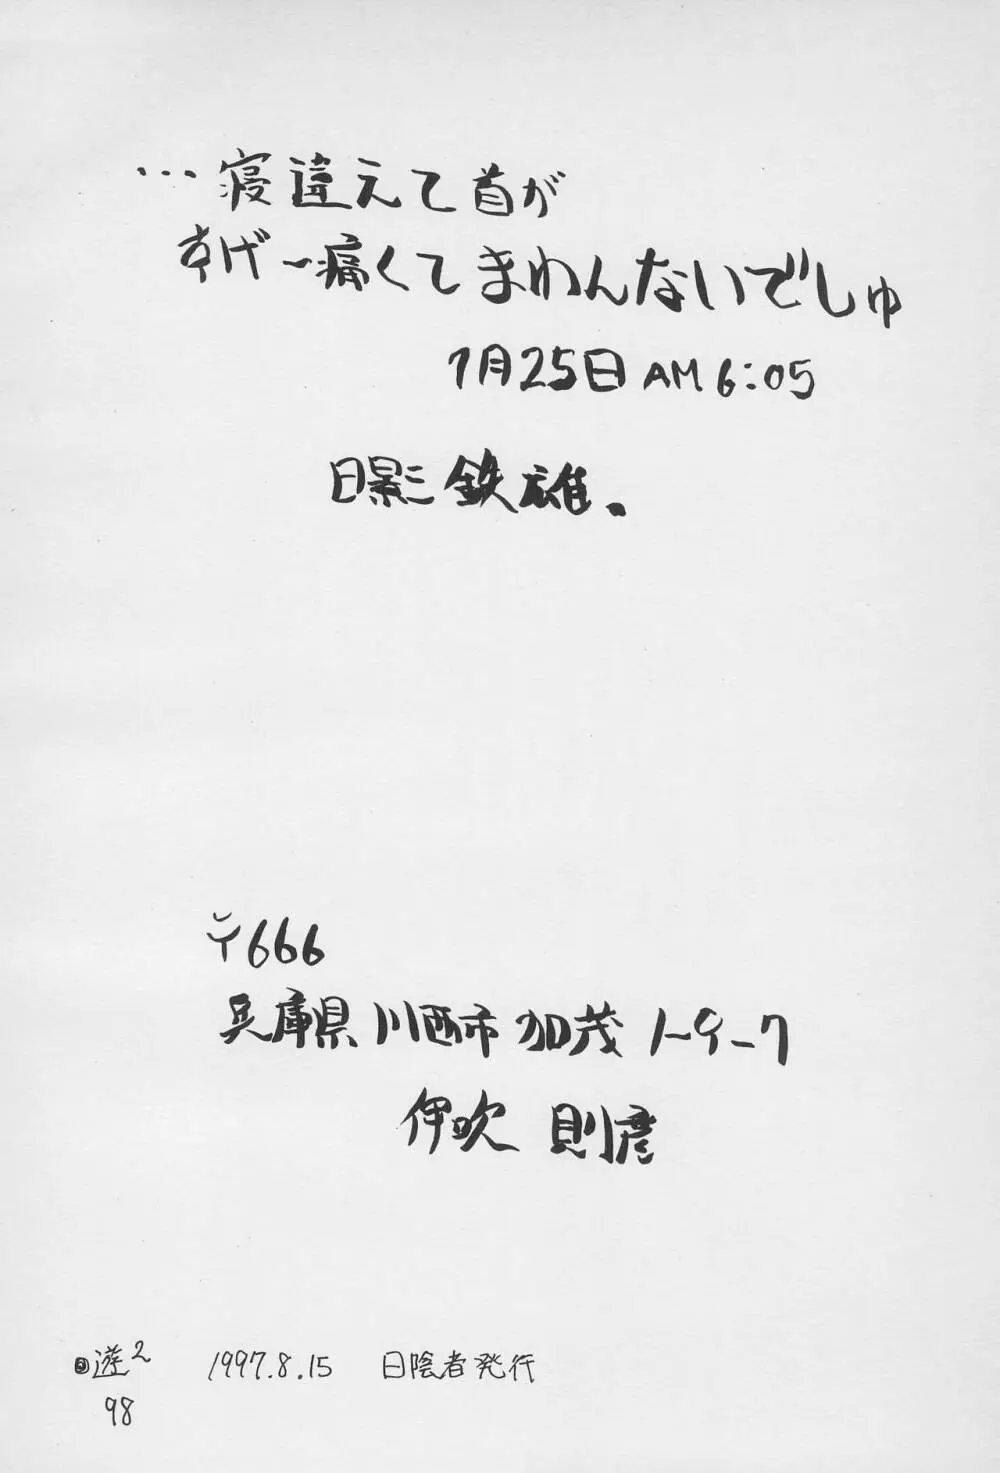 …寝違えて首が
すげー痛くてまわんないでしゅ
7月25日AM6:05
日影鉄雄。
〒666
兵庫県川西市加茂1-9-7
伊吹 則彦
遊2 1997.8.15 日陰者発行
98